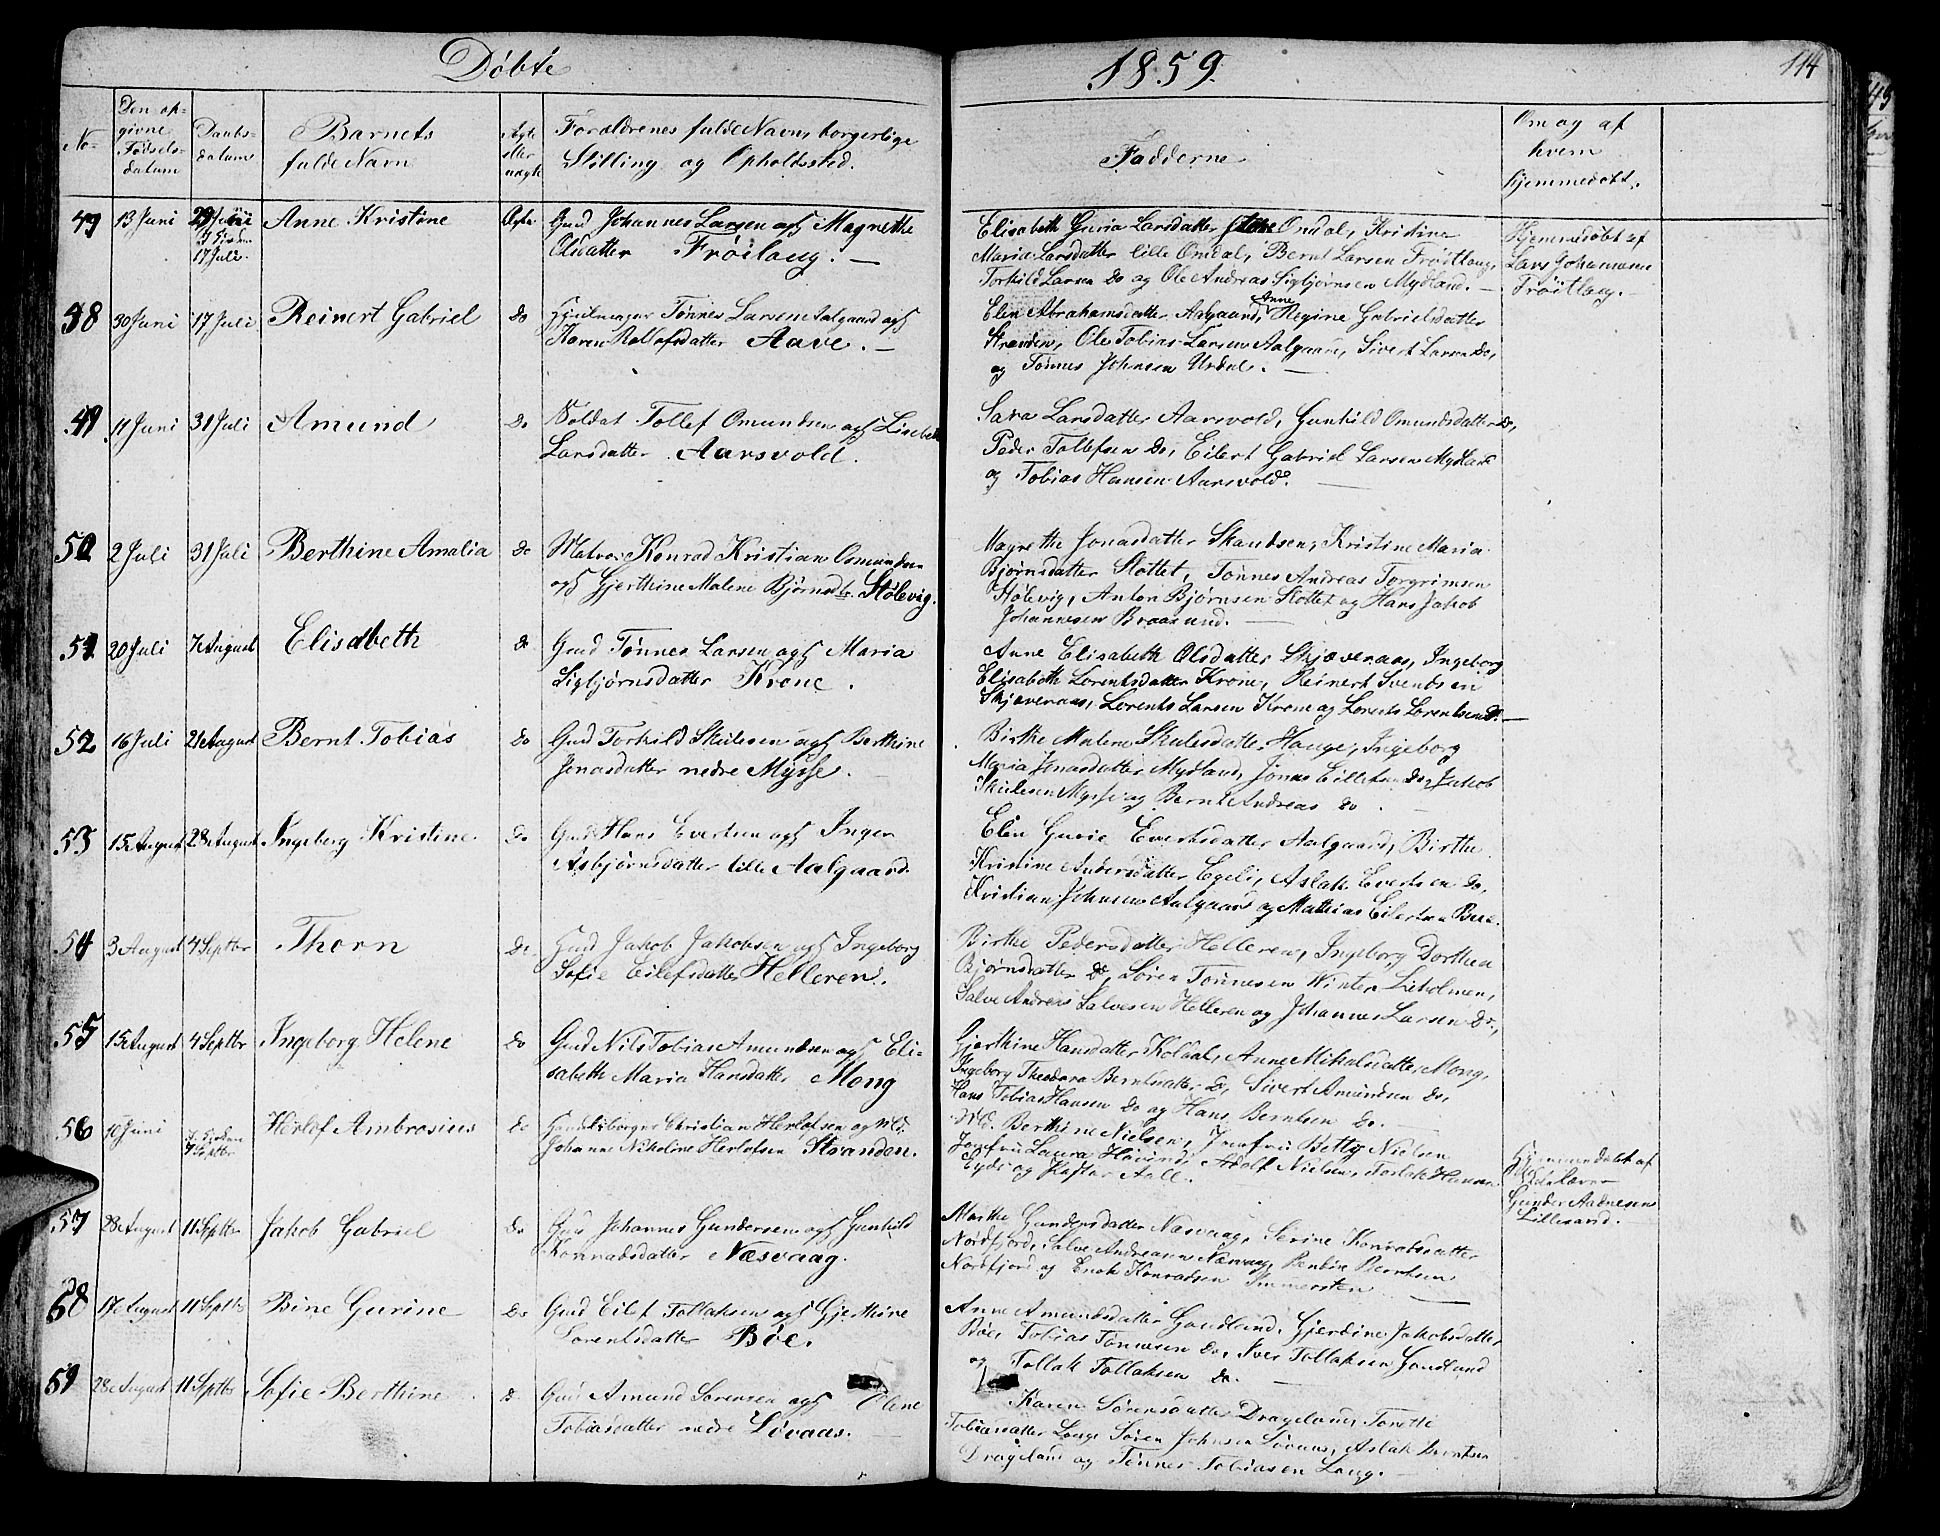 Døbte 1859. 114
No
Den opgivne Fødselsdatum
Daabsdatum
Barnets fulde Navn
Ægte eller uægte
Forældrenes fulde Navn, borgerlige Stilling og Opholdssted.
Fadderne
Om og af hvem hjemmedøbt.
13 Juni 17 Juli. Anne Kristine Ægte. Gmd Johannes Larsen og h Magrethe
Olsdatter Frøitlaug. —
Elisabeth Guria Larsdatter Omdal, Kristine
Maria Larsdatter lille Omdal, Bernt Larsen Frøitlaug,
Torkild Larsen do og Ole Andreas Sigbjørnsen Mydland. —
Hjemmedøbt af
Lars Johannesen
Frøitlaug. —
48 30 Juni 17 Juli Reinert Gabriel do Tønnes Larsen Aalgaard og h
Karen Rollefsdatter Aave. —
Elen Abrahamsdatter Aalgaard, Anne Regine Gabrielsdatter
Stranden, Ole Tobias Larsen Aalgaard, Sivert Larsen do,
og Tønnes Johnsen Urdal. —
49 11 Juni 31 Juli Amund do Soldat Tollef Omundsen og h Lisebeth
Larsdatter Aarsvold.
Sara Larsdatter Aarsvold, Gunhild Omundsdatter do,
Peder Tollefsen do, Eilert Gabriel Larsen Mydland
og Tobias Hansen Aarsvold.
50 2 Juli 31 Juli Berthine Amalia do Matros Konrad Kristian Osmundsen
og h Gjerthine Malene Bjørnsdtr. Stølevig.
Magrethe Jonasdatter Skandsen, Kristine Maria
Bjørnsdatter Slottet, Tønnes Andreas Torgrimsen
Stølevig, Anton Bjørnsen Slottet og Hans Jakob
Johannesen Braasund. —
51 20 Juli 7 August Elisabeth do Gmd Tønnes Larsen og h Maria
Sigbjørnsdatter Krone.
Anne Elisabeth Olsdatter Skjæveraas, Ingeborg
Elisabeth Lorentsdatter Krone, Reinert Svendsen
Skjæveraas, Lorents Larsen Krone og Lorents Lorentsen do. —
52 16 Juli 21 August Bernt Tobias do Gmd Torkild Skulesen og h Berthine
Jonasdatter nedre Mysse. —
Birthe Malene Skulesdatter Hauge, Ingeborg
Maria Jonasdatter Mydland, Jonas Eilertsen do, Jakob
Skulesen Mysse og Bernt Andreas do
53 15 August 28 August Ingeborg Kristine do Gmd Hans Evertsen og h Inger
Asbjørnsdatter lille Aalgaard.
Elen Gurie Evertsdatter Aalgaard, Birthe
Kristine Andersdatter Egeli, Aslak Evertsen do,
Kristian Johnsen Aalgaard og Mathias Eilertsen Bue.
54 3 August 4 Septbr Thorn do Gmd Jakob Jakobsen og h Ingeborg
Sofie Eilefsdatter Helleren.
Birthe Pedersdatter Helleren, Ingeborg Dorthea
Bjørnsdatter do, Søren Tønnesen Winter Liholmen,
Salve Andreas Salvesen Helleren og Johannes Larsen do.,
55 15 August 4 Septbr Ingeborg Helene do Gmd Nils Tobias Amundsen og h Eli-
sabeth Maria Hansdatter Mong
Gjerthine Hansdatter Koldal, Anne Mikalsdatter Mong,
Ingeborg Theodora Berntsdatter do, Sivert Amundsen do,
Hans Tobias Hansen do og Hans Berntsen do. —
56 10 Juni Septbr Herlof Ambrosius do Christian Herlofsen og Md.
Johanne Nikoline Herlofsen Stranden.
Md. Berthine Nielsen, Jomfru Betty Nielsen
Jomfru Laura Adolf Nielsen, Torlak Hansen
Eyde og Aall.
Hjemmedøbt af
Gunder Aadnesen
Lillesand. —
57 28 August 11 Septbr Jakob Gabriel do Gmd Johannes Gundersen og h Gunhild
Konradsdatter Næsvaag.
Marthe Gundersdatter Næsvaag, Serine Konradsdatter
Nordfjord, Salve Andreasen Næsvaag, Berntsen
Nordfjord og Enok Konradsen
58 17 August 11 Septbr Bine Gurine do Gmd Eilef Tollaksen og h Gjerthine
Lorentsdatter Bøe.
Anne Amundsdatter Gaudland, Gjerdine Jakobsdatter
Bøe, Tobias Tønnesen do, Iver Tollaksen Gaudland
og Tollak Tollaksen do. —
59 28 August 11 Septbr Sofie Berthine do Gmd Amund Sørensen og h Olene
Tobiasdatter nedre Løvaas. —
Karen Sørensdatter Drageland, Tonette
Tobiasdatter Laug, Søren Johnsen Løvaas, Aslak Berntsen
Drageland og Tønnes Tobiasen Laug. —